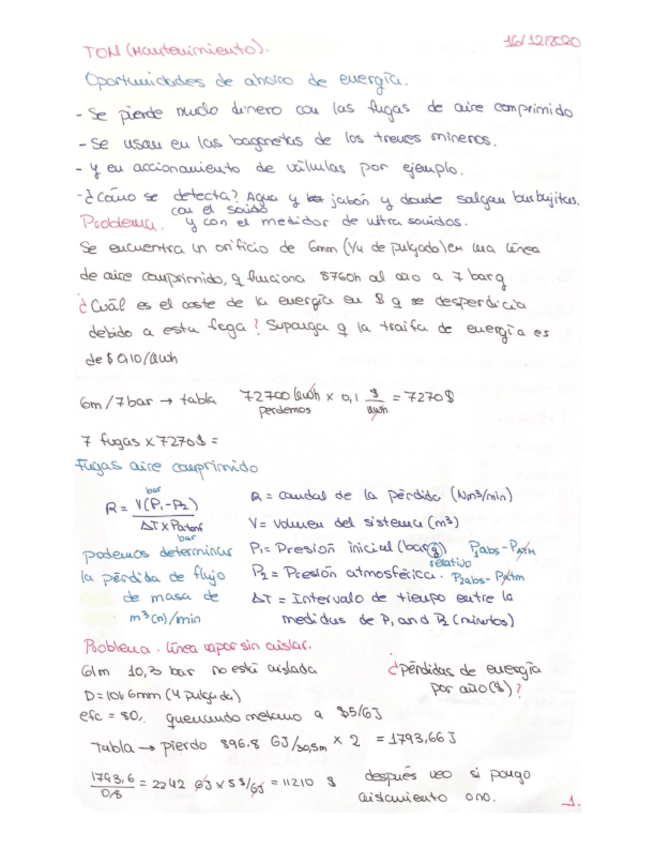 TOM (Mantenimiento).
16/12/2020
Oportunidades de ahorro de energía.
- Se pierde mucho dinero con las fugas de aire comprimido
- Se usan en las bagonetas de los trenes mineros.
- Y en accionamiento de válvulas por ejemplo.
- ¿Cómo se detecta? Agua y jabón y donde salgan burbujitas,
con el sonido
Problema. y con el medidor de ultra sonidos.
Se encuentra un orificio de 6mm (1/4 de pulgada) en una línea
de aire comprimido, q funciona 8760h al año a 7 barg
¿Cuál es el coste de la energía en $ q se desperdicia
debido a esta fuga? Suponga q la traifa de energía es
de $ 0,10/kwh
6m/7bar → tabla 72700 kwh x 0,1 $/kwh = 7270$
perdemos
7 fugas x 7270$ =
Fugas aire comprimido
R = V(P1-P2) / ΔT x Patm
bar
bar
podemos determinar
la pérdida de flujo
de masa de
m³(n)/min
R = caudal de la pérdida (Nm³/min)
V = Volumen del sistema (m³)
P1 = Presión inicial (bar g) P1abs - PATM
relativo
P2 = Presión atmosférica. P2abs - PAtm
ΔT = Intervalo de tiempo entre la
medidas de P1 and P2 (minutos)
Problema. línea vapor sin aislar.
61m 10,3 bar no está aislada
¿pérdidas de energía
por año($)?
D = 101,6mm (4 pulgada)
efc = 80, quemando metano a $5/GJ
Tabla → pierdo 896,8 GJ/30,5m x 2 = 1793,6GJ
1793,6/0,8 = 2242 GJ x 5 $/GJ = 11210 $
después veo si pongo
aislamiento o no.
1.